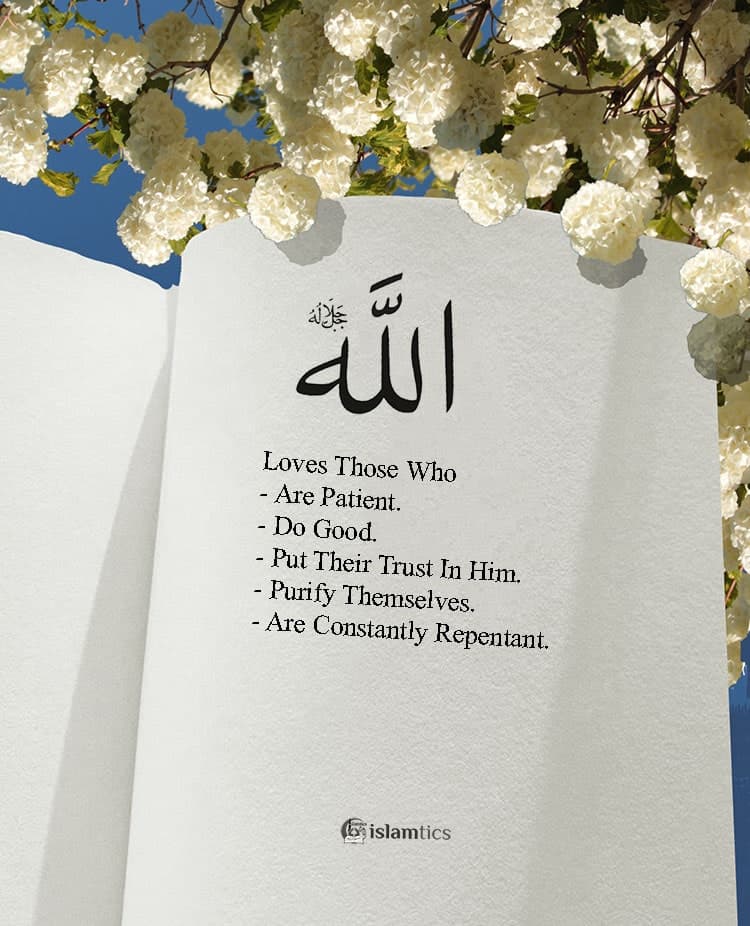 الله
جل جلاله
Loves Those Who
- Are Patient.
- Do Good.
- Put Their Trust In Him.
- Purify Themselves.
- Are Constantly Repentant.
islamtics